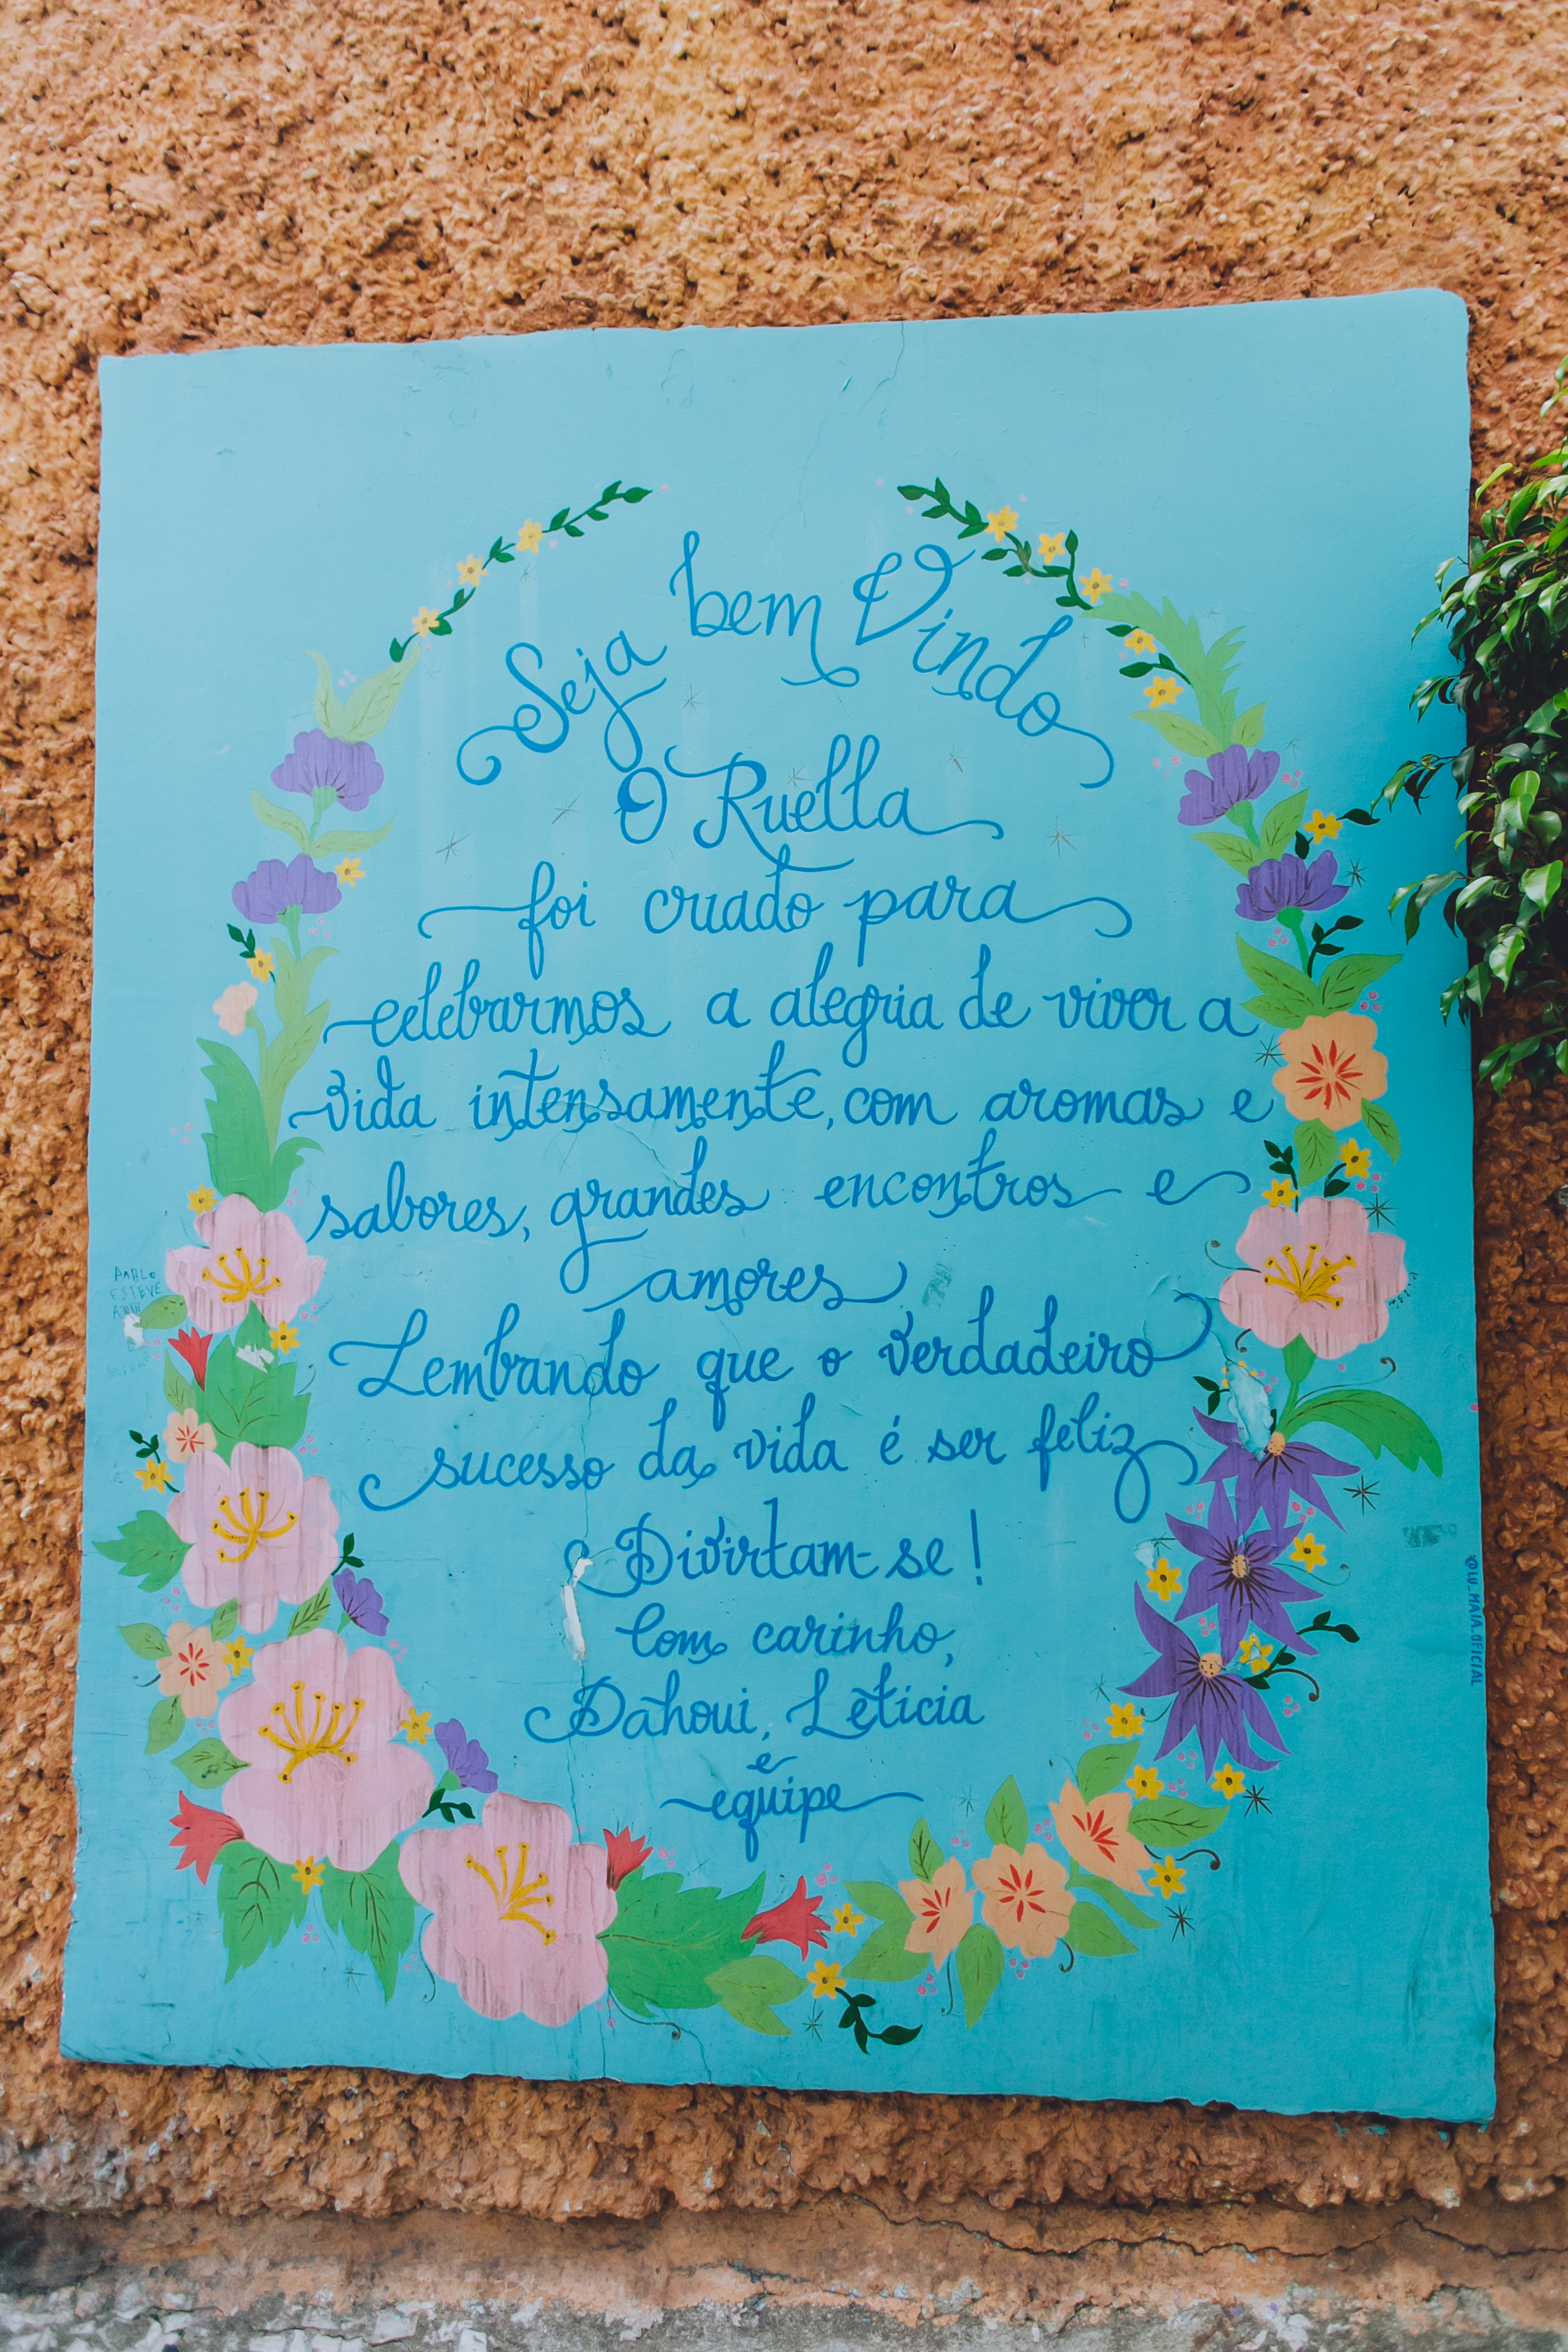 Seja bem Vindo
O Ruella
foi criado para
celebrarmos a alegria de viver a
vida intensamente, com aromas e
sabores, grandes encontros e
amores
Lembrando que o verdadeiro
sucesso da vida é ser feliz
Divirtam-se!
Com carinho,
Dahoui, Letícia
e
equipe
@LU_MAIA.OFICIAL
ESTEVE